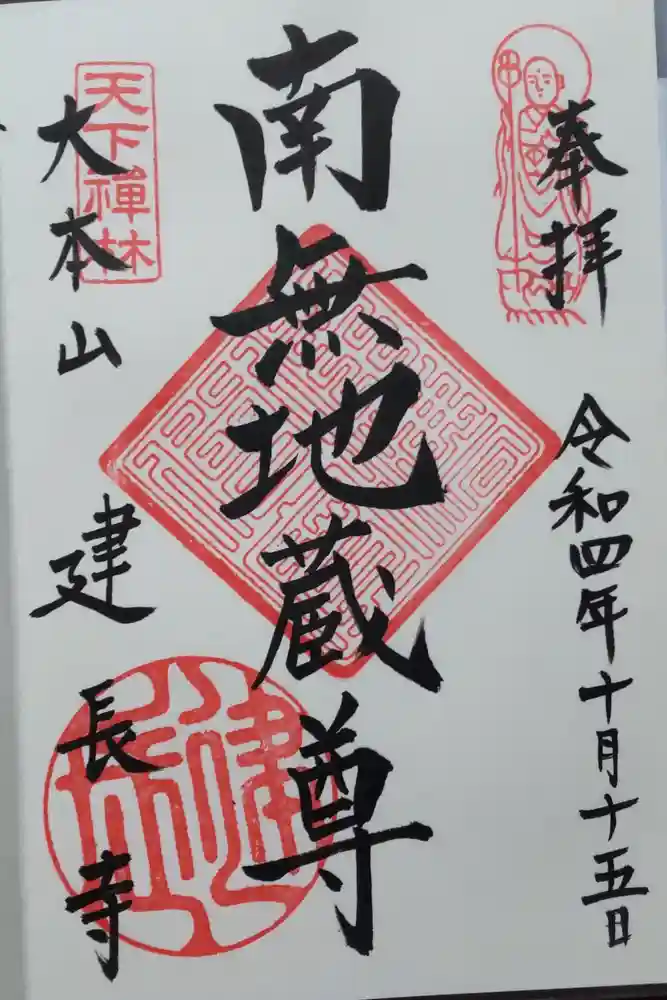 奉拝
令和四年十月十五日
南無地蔵尊
天下禅林
大本山建長寺